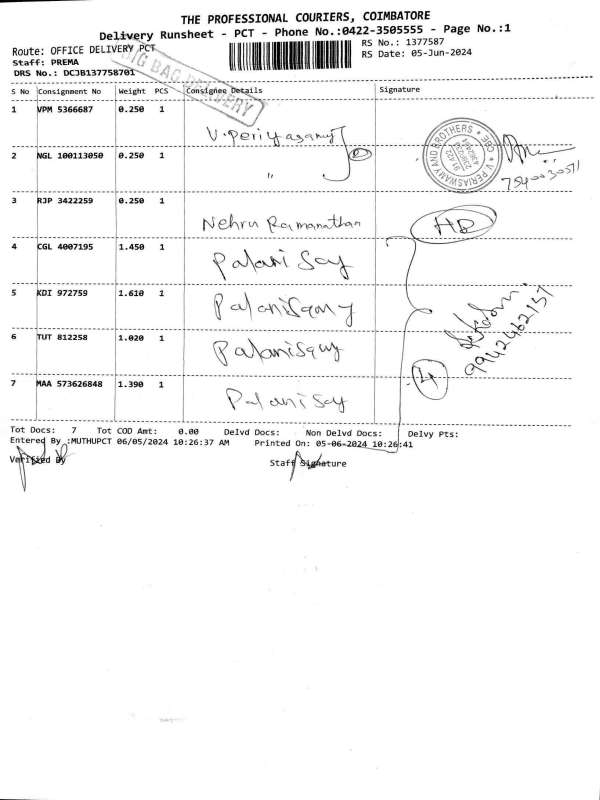 THE PROFESSIONAL COURIERS, COIMBATORE
Delivery Runsheet - PCT - Phone No.:0422-3505555 - Page No.:1
Route: OFFICE DELIVERY PCT
RS No.: 1377587
Staff: PREMA
RS Date: 05-Jun-2024
DRS No.: DCJB137758701
BIG BAG DELIVERY
S No Consignment No Weight PCS Consignee Details Signature
1 VPM 5366687 0.250 1
V. Periyasamy
2 NGL 100113050 0.250 1
"
2
V PERIASWAMY AND BROTHERS * CBE *
3 RJP 3422259 0.250 1
Nehru Ramanathan
HD
4 CGL 4007195 1.450 1
Palani Say
5 KDI 972759 1.610 1
Palanisamy
9942462137
6 TUT 812258 1.020 1
Palanisamy
4
7 MAA 573626848 1.390 1
Palani Say
Tot Docs: 7 Tot COD Amt: 0.00 Delvd Docs: Non Delvd Docs: Delvy Pts:
Entered By :MUTHUPCT 06/05/2024 10:26:37 AM Printed On: 05-06-2024 10:26:41
Verified By
Staff Signature